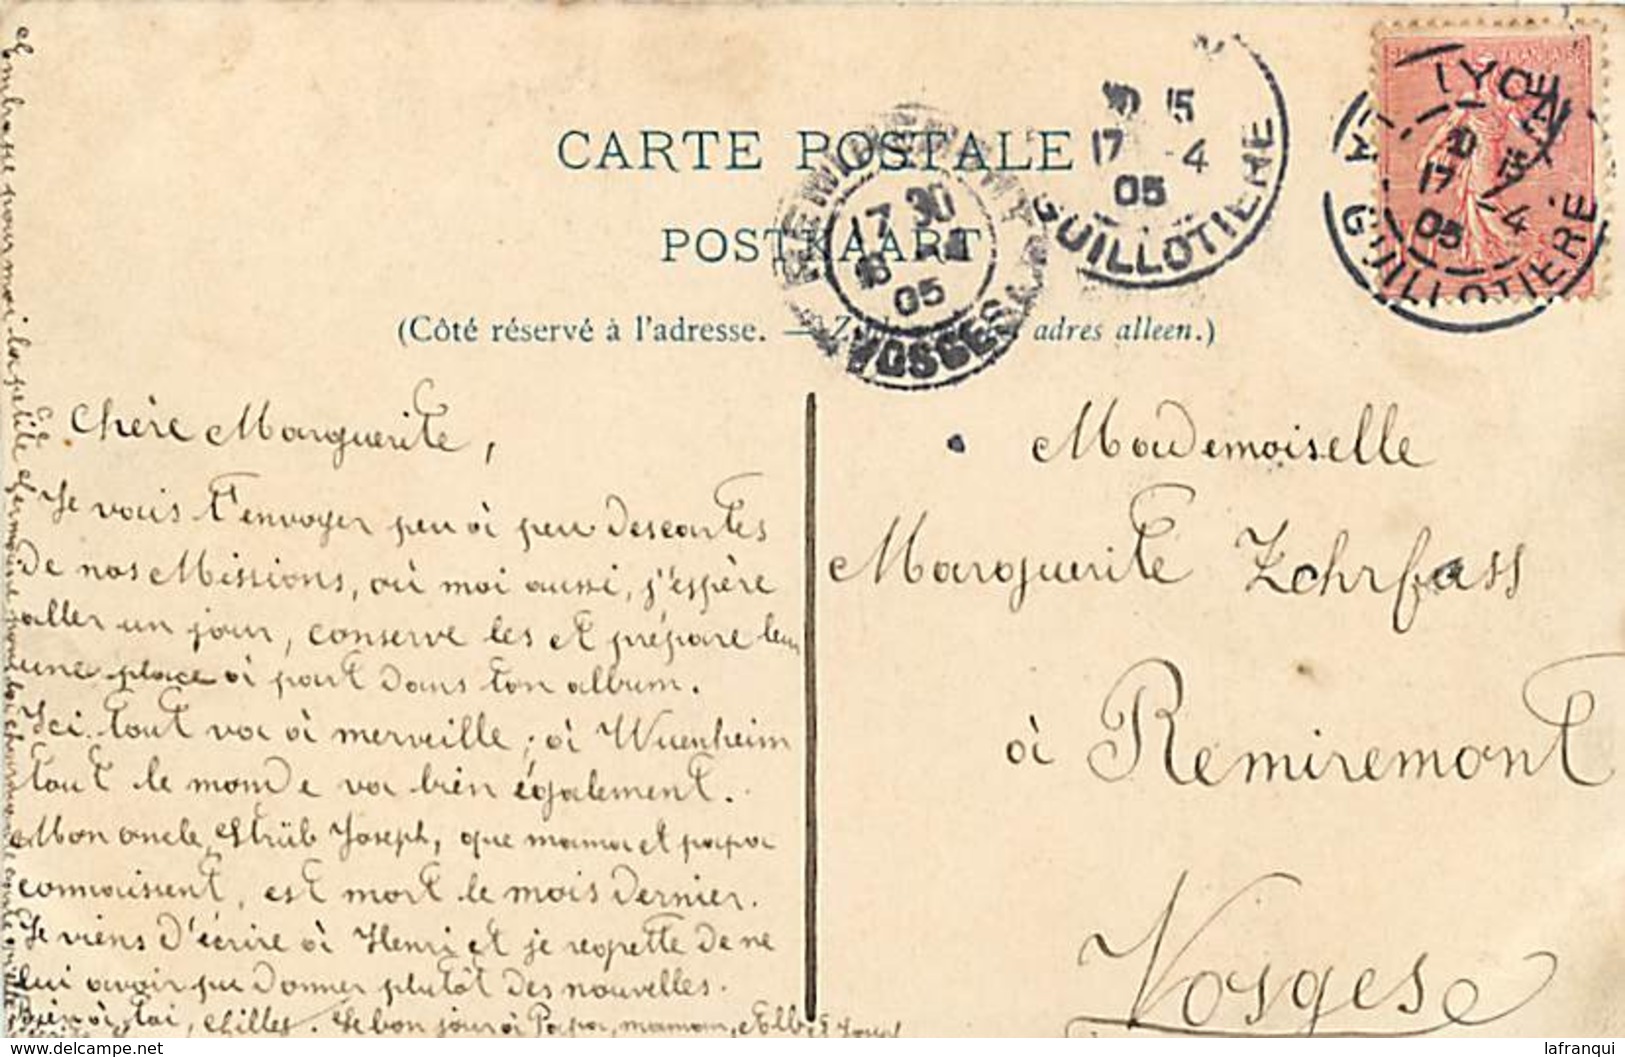 CARTE POSTALE
POSTKAART
(Côté réservé à l'adresse. — adres alleen.)
17 30
18
05
VOSGES
15
17 - 4
05
GUILLOTIERE
LYON
LA GUILLOTIERE
17 - 4
05
Chère Marguerite,
Je vais t'envoyer peu à peu des cartes
de nos Missions, où moi aussi, j'espère
aller un jour, conserve les et prépare leur
une place à part dans ton album.
Ici tout va à merveille; à Wuenheim
tout le monde va bien également.
Mon oncle Strüb Joseph, que mama et papa
connaissent, est mort le mois dernier.
Je viens d'écrire à Henri et je regrette de ne
lui avoir pu donner plutôt des nouvelles.
Bien à toi, Achilles. Le bonjour à Papa, maman,
embrasse pour moi la petite Germaine
Mademoiselle
Marguerite Zehrfuss
à Remiremont
Vosges
delcampe.net
lafranqui